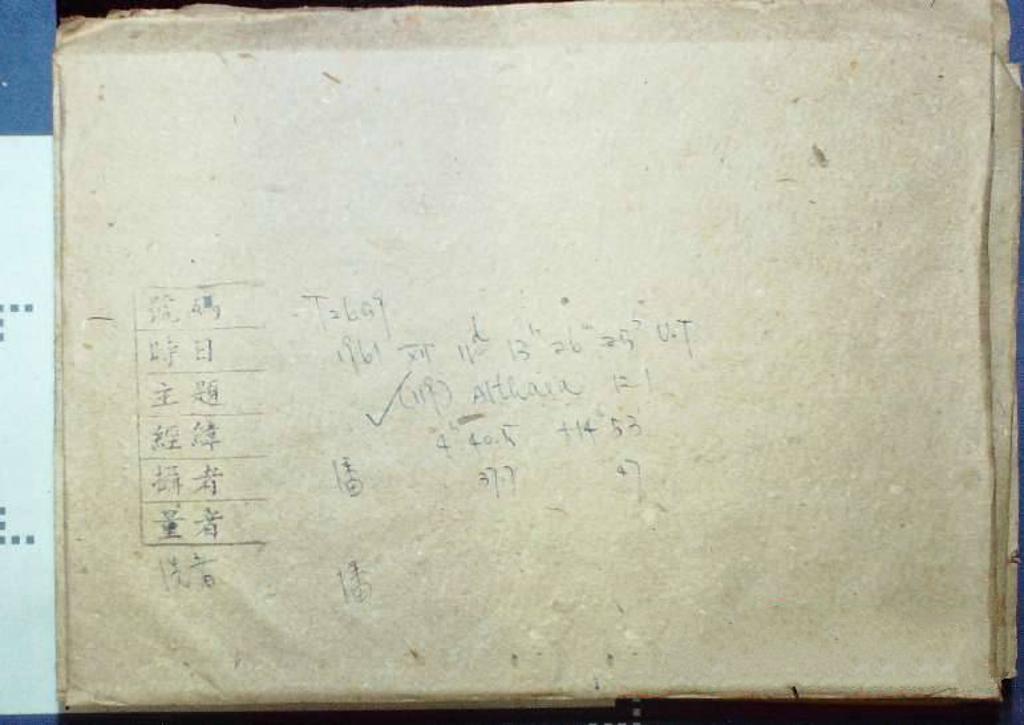 號碼 T2609
時日 1961 XII 11d 13h 26m 25s U.T
主題 ✓(119) Althaea
經緯 4h 40.5 +14° 53
攝者 潘 37.7 47
量者
洗者 潘